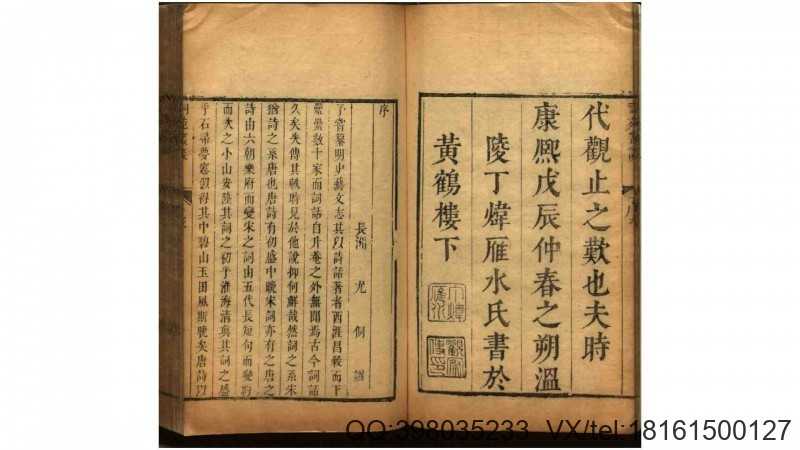 代觀止之歎也夫時
康熙戊辰仲春之朔溫
陵丁煒雁水氏書於
黃鶴樓下
序
長洲 尤 侗 譔
予嘗纂明史藝文志其以詩話著者西涯昌穀而下
纍纍數十家而詞話自升菴之外無聞焉古今詞話
久矣失傳其軼時見於他說抑何鮮哉然詞之系宋
猶詩之系唐也唐詩有初盛中晚宋詞亦有之唐之
詩由六朝樂府而變宋之詞由五代長短句而變約
而次之小山安陸其詞之初乎淮海清真其詞之盛
乎石帚夢窗似得其中碧山玉田風斯晚矣唐詩以
QQ:398035233 VX/tel:18161500127